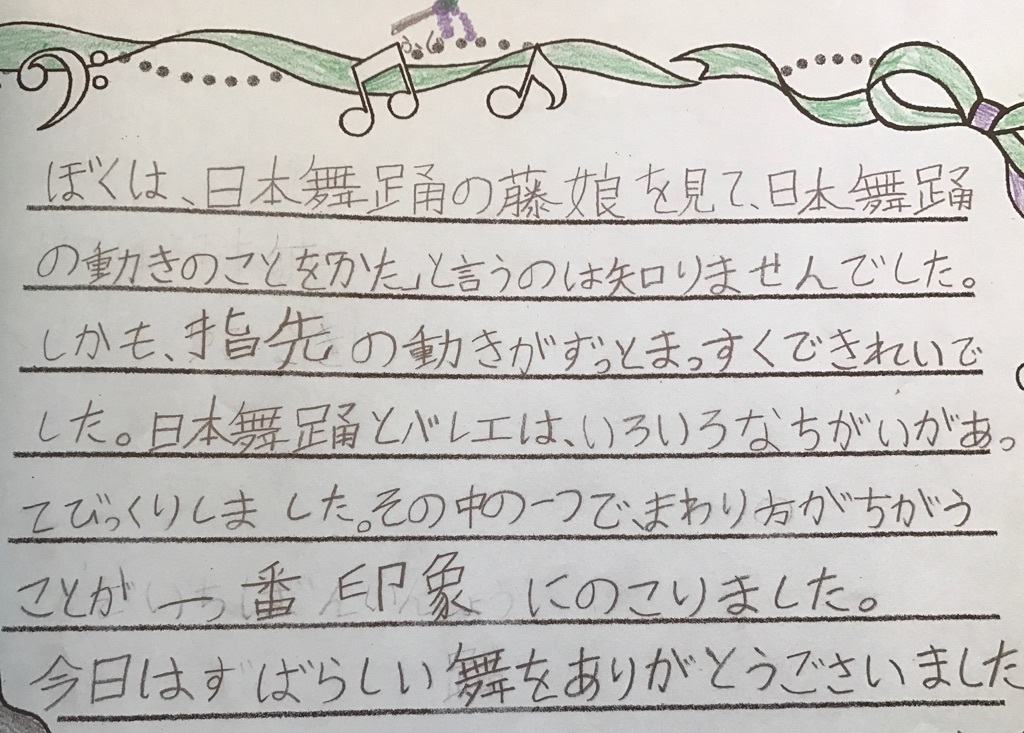 ぼくは、日本舞踊の藤娘を見て、日本舞踊
の動きのことを「かた」と言うのは知りませんでした。
しかも、指先の動きがずっとまっすぐできれいで
した。日本舞踊とバレエは、いろいろなちがいがあっ
てびっくりしました。その中の一つで、まわり方がちがう
ことが一番印象にのこりました。
今日はすばらしい舞をありがとうございました